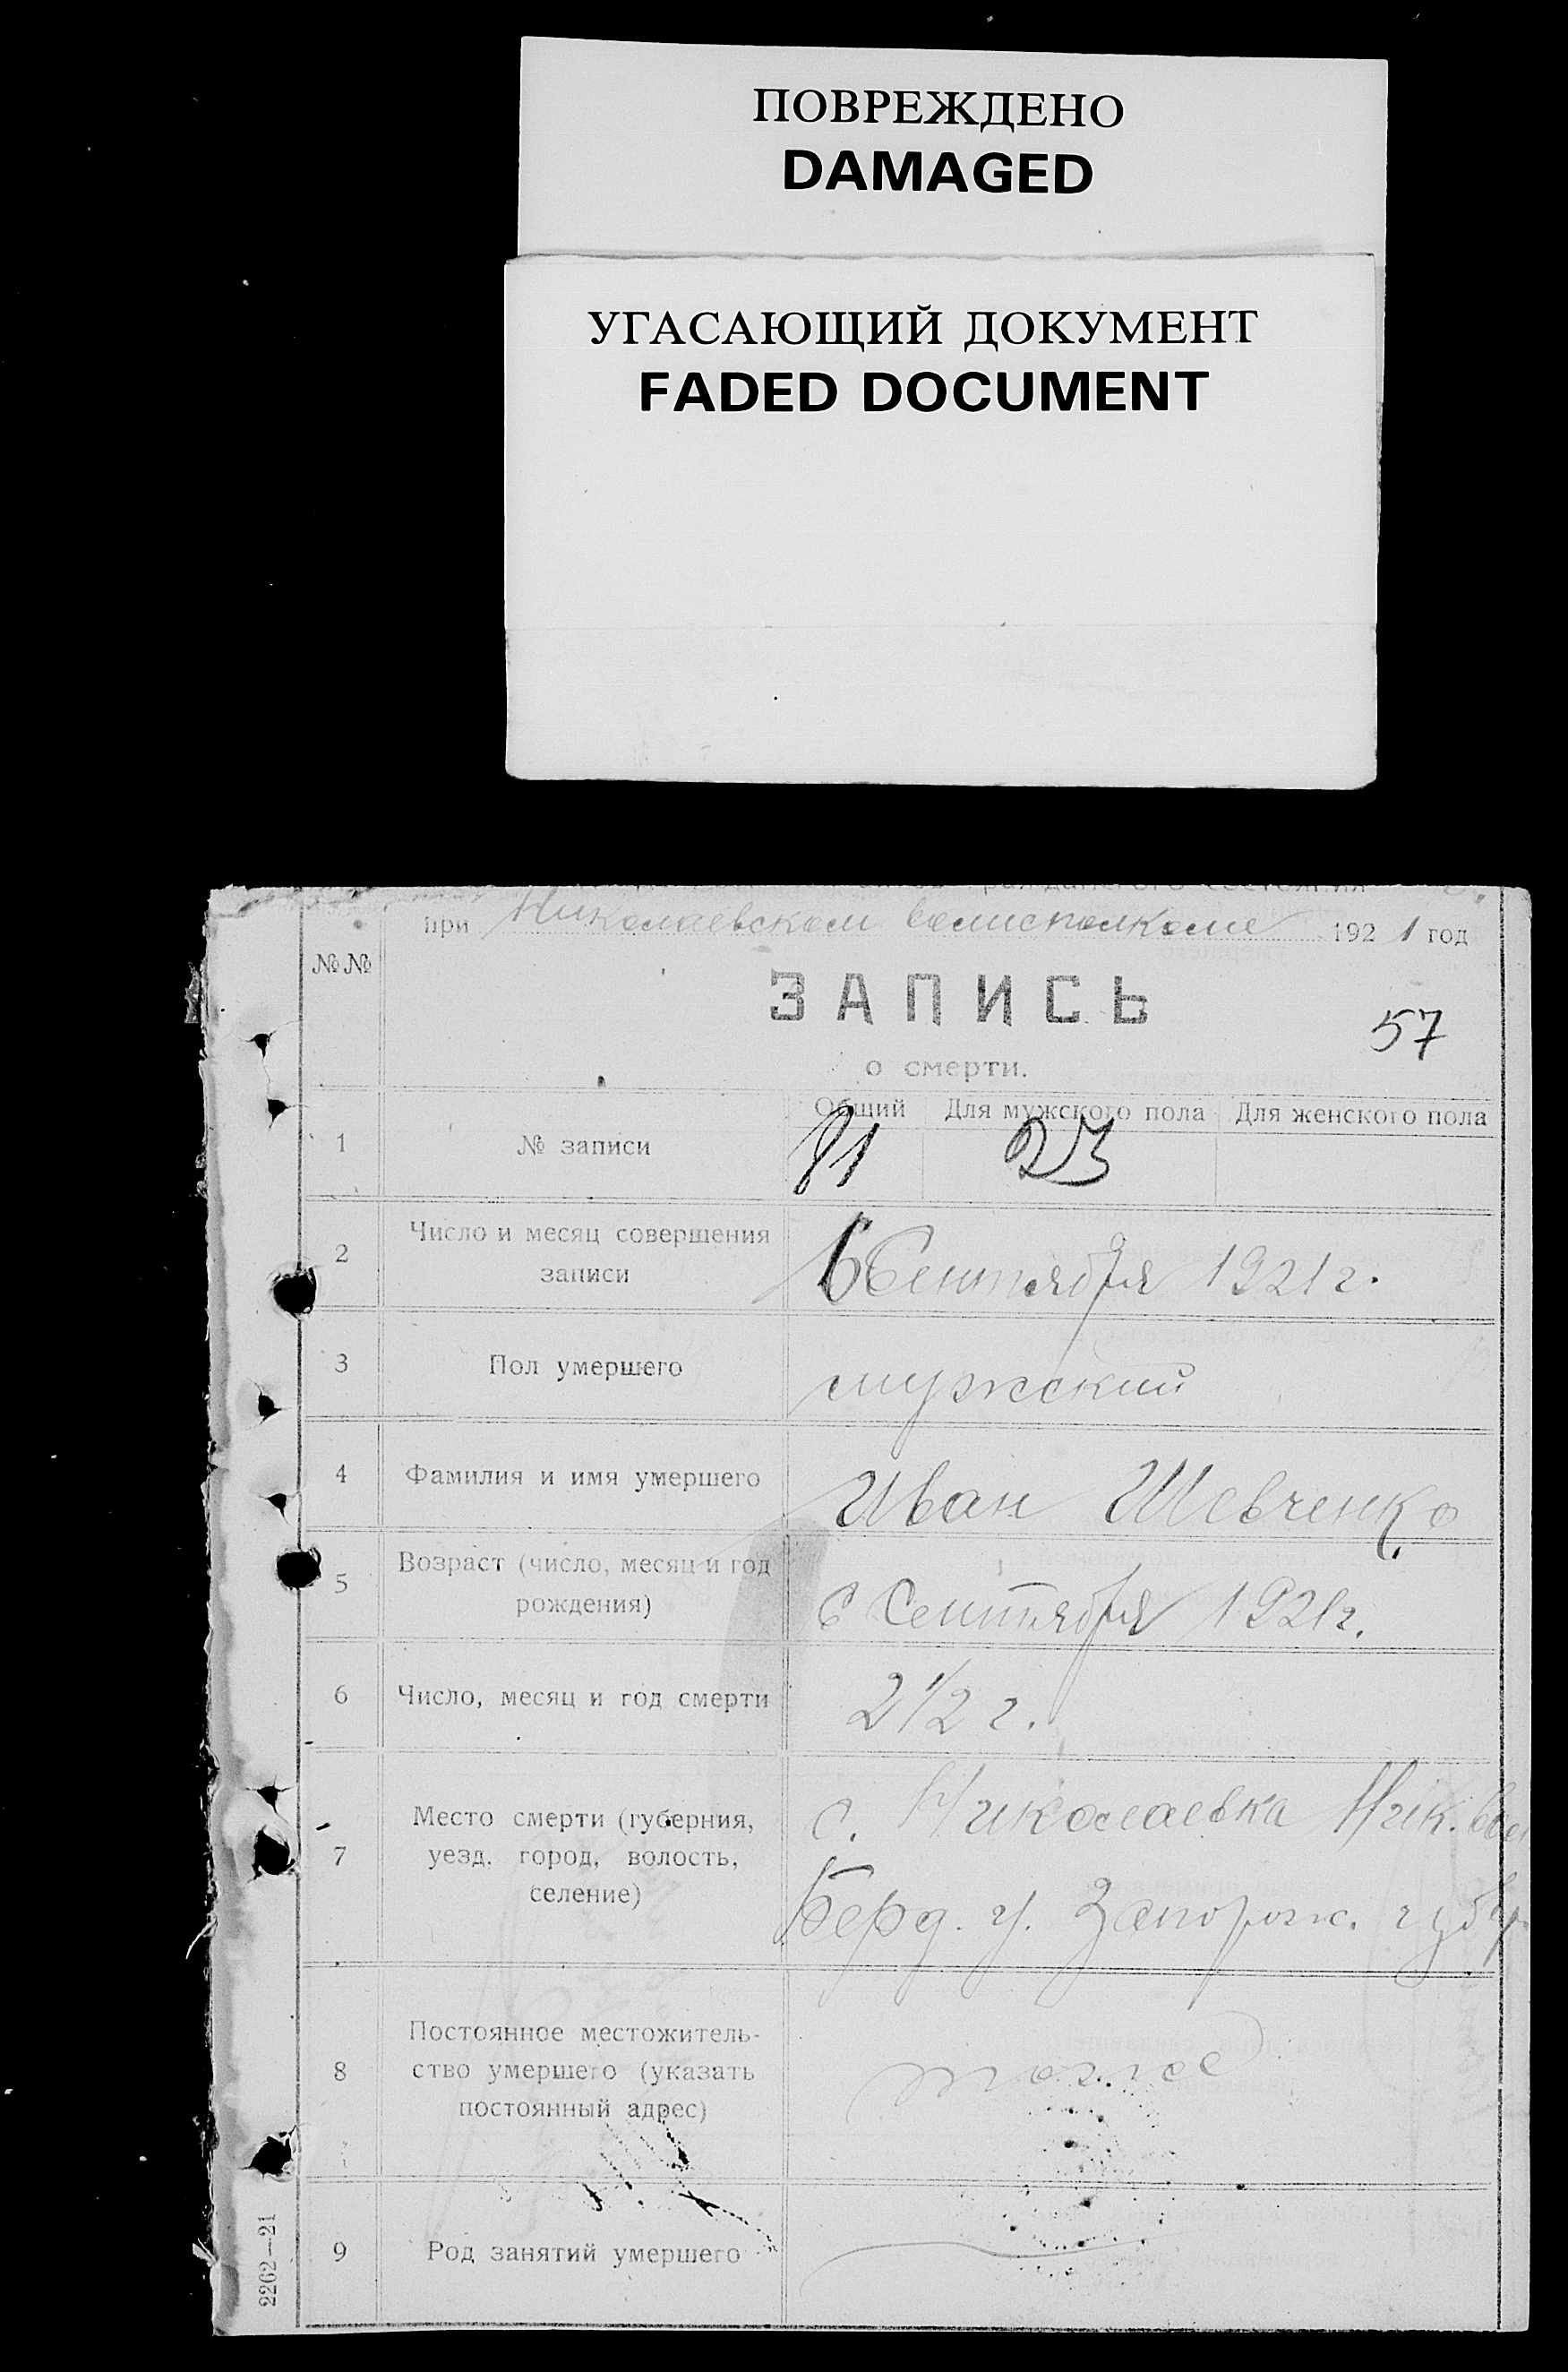 ПОВРЕЖДЕНО
DAMAGED
УГАСАЮЩИЙ ДОКУМЕНТ
FADED DOCUMENT
гражданского состояния
при Николаевском волисполкоме 1921 год
№№
ЗАПИСЬ
57
о смерти.
Общий Для мужского пола Для женского пола
1 № записи 81 23
2 Число и месяц совершения
записи
6 Сентября 1921 г.
3 Пол умершего мужский
4 Фамилия и имя умершего Иван Шевченко
5 Возраст (число, месяц и год
рождения)
6 Сентября 1921 г.
6 Число, месяц и год смерти 2 1/2 г.
7 Место смерти (губерния,
уезд, город, волость,
селение)
с. Николаевка Ник. вол
Берд. у. Запорож. губер
8 Постоянное местожитель-
ство умершего (указать
постоянный адрес)
тоже
9 Род занятий умершего
2262—21